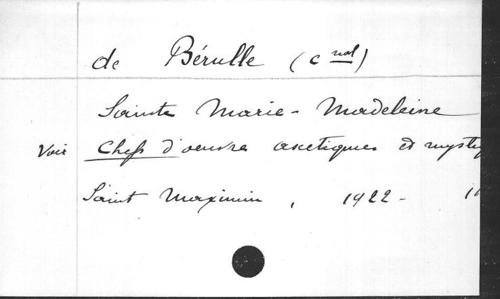 de Bérulle (cnal)
Sainte Marie-Madeleine
Voir Chefs d'oeuvre ascetiques et mystiq
Saint Maximin, 1922-